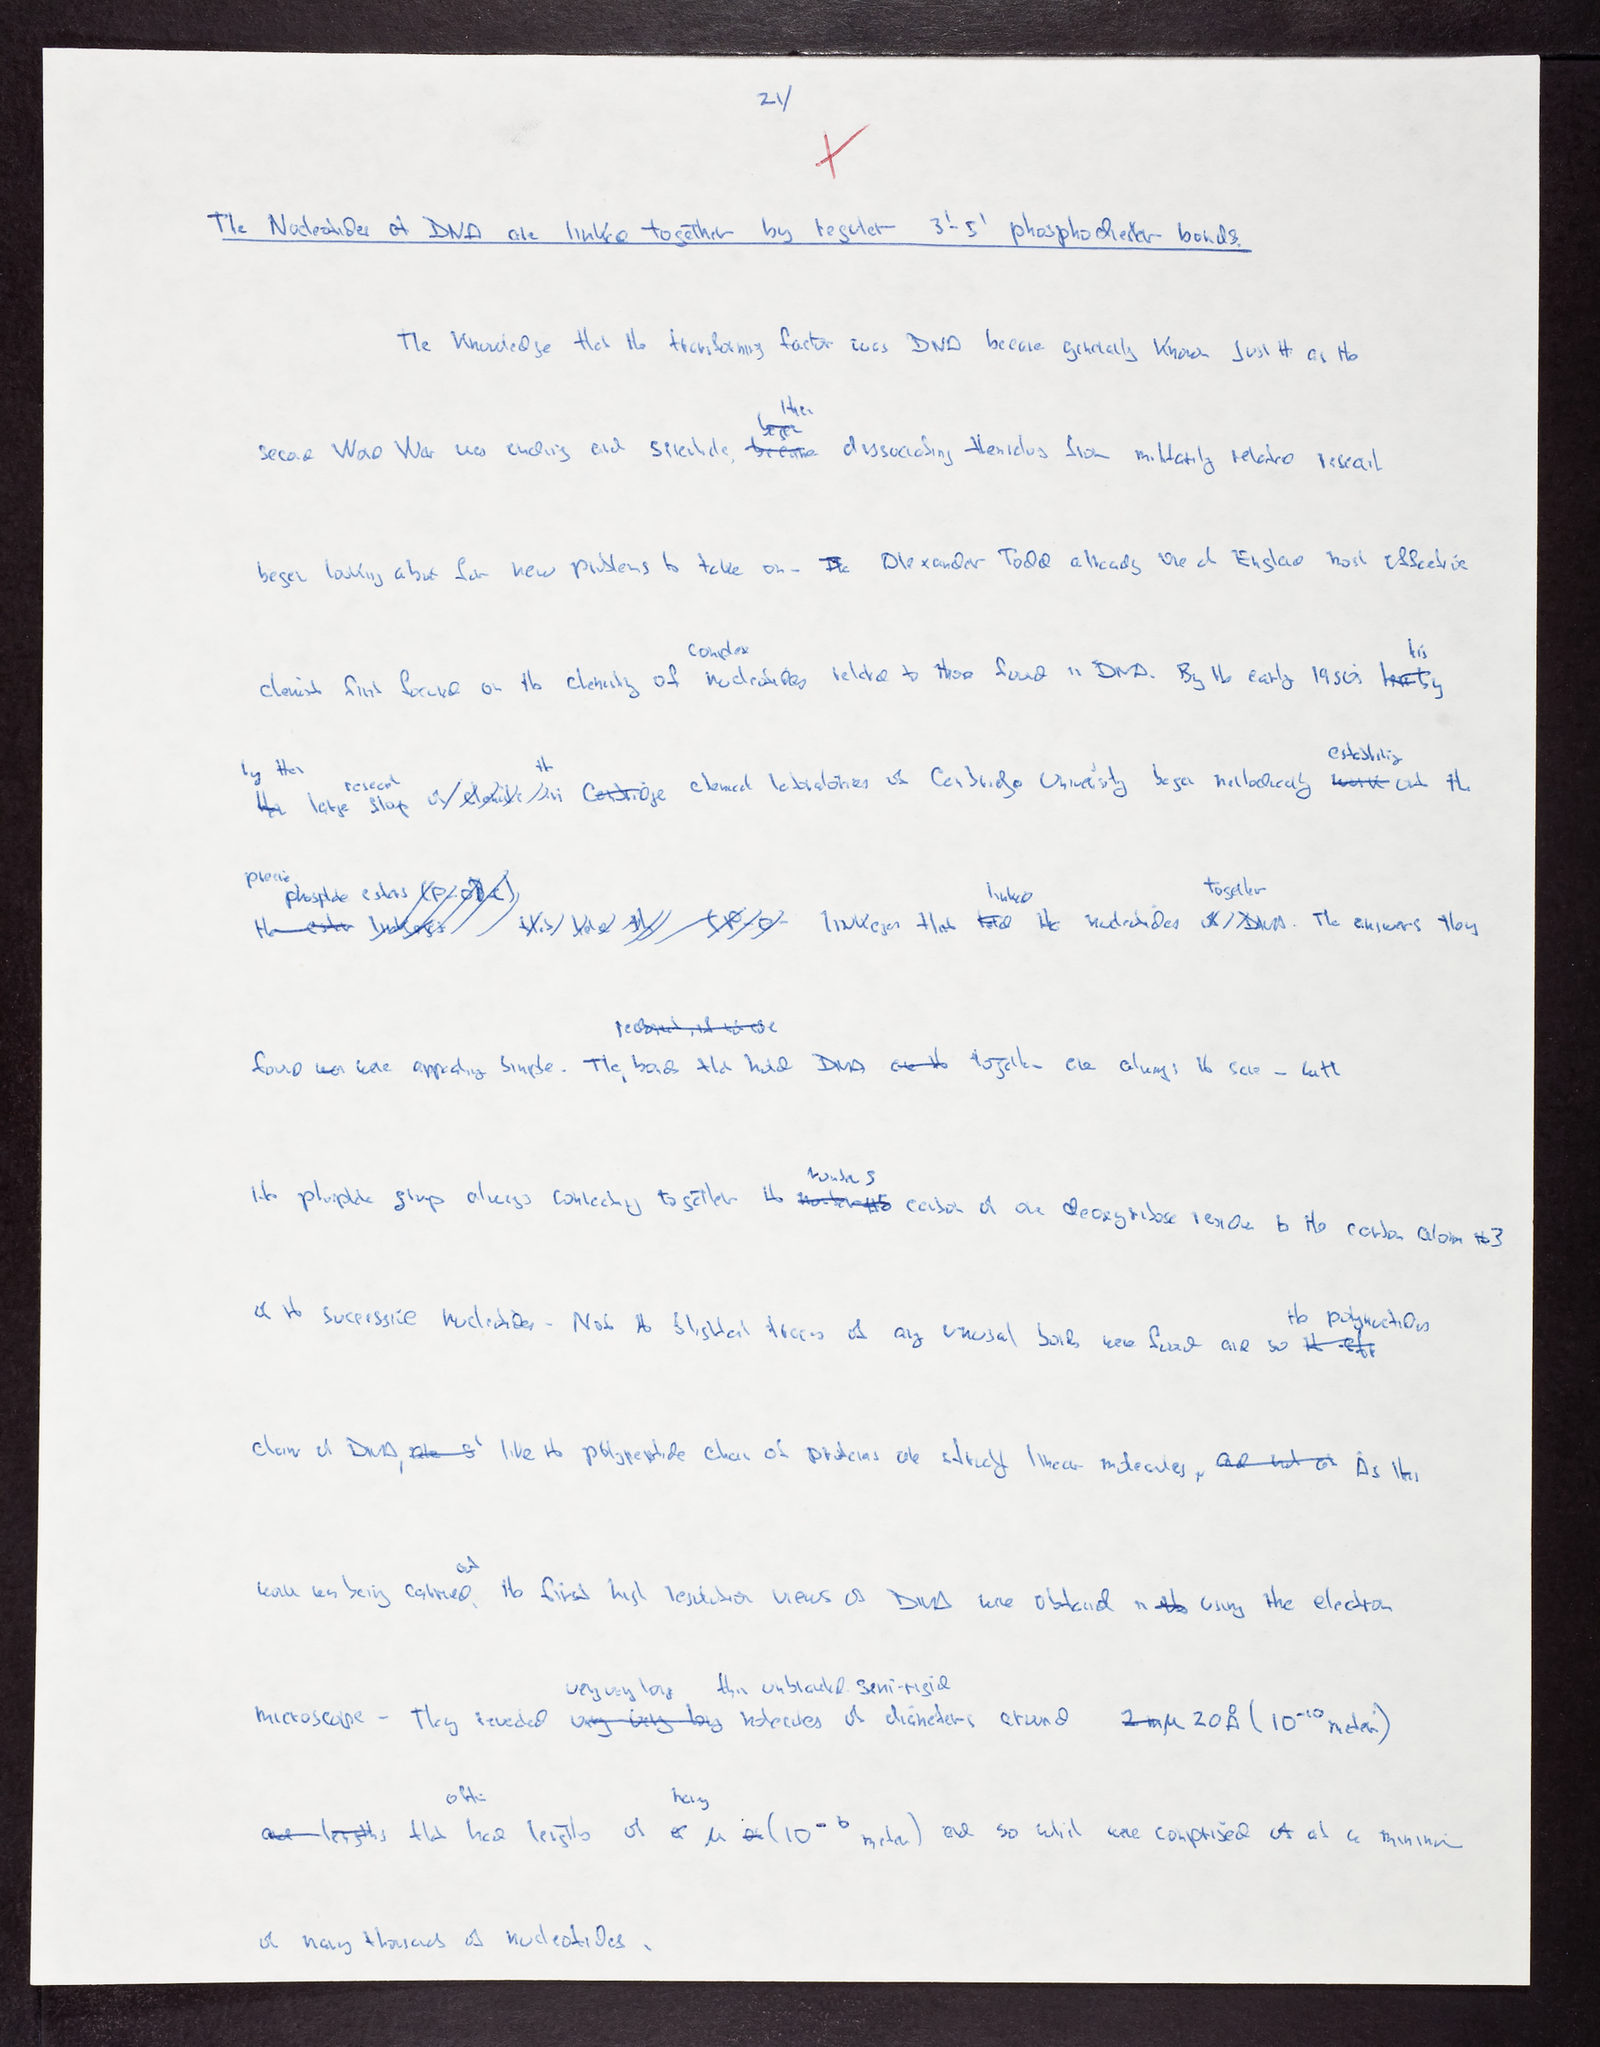 21/
The Nucleotides of DNA are linked together by regular 3'-5' phosphodiester bonds.
The Knowledge that the transforming factor was DNA became generally known just as the
then
began
second World War was ending and scientists, became dissociating themselves from militarily related research
began looking about for new problems to take on - The Alexander Todd already one of England most effective
complex his
chemists first focused on the chemistry of nucleotides related to those found in DNA. By the early 1950's
by then research the establishing
the large group of chemists in Cambridge chemical laboratories of Cambridge University began methodically work out the
precise phosphate esters linked together
the ester linkages linkages that held the nucleotides of DNA. The answers they
found were appealing simple. The bonds that hold DNA together are always the same - with
number 5
the phosphate group always connecting together the carbon of one deoxyribose residue to the carbon atom 3
the polynucleotides
of the successive nucleotides - Not the slightest traces of any unusual bonds were found and so
chain of DNA, like the polypeptide chain of proteins are strictly linear molecules, and not as As this
out
work was being carried, the first high resolution views of DNA were obtained in the using the electron
very very long thin unbranched semi-rigid
microscope - They revealed very very long molecules of diameters around 2 mμ 20Å (10⁻¹⁰ meter)
often many
and lengths that had lengths of μ (10⁻⁶ meter) and so which were comprised of at a minimum
of many thousands of nucleotides.